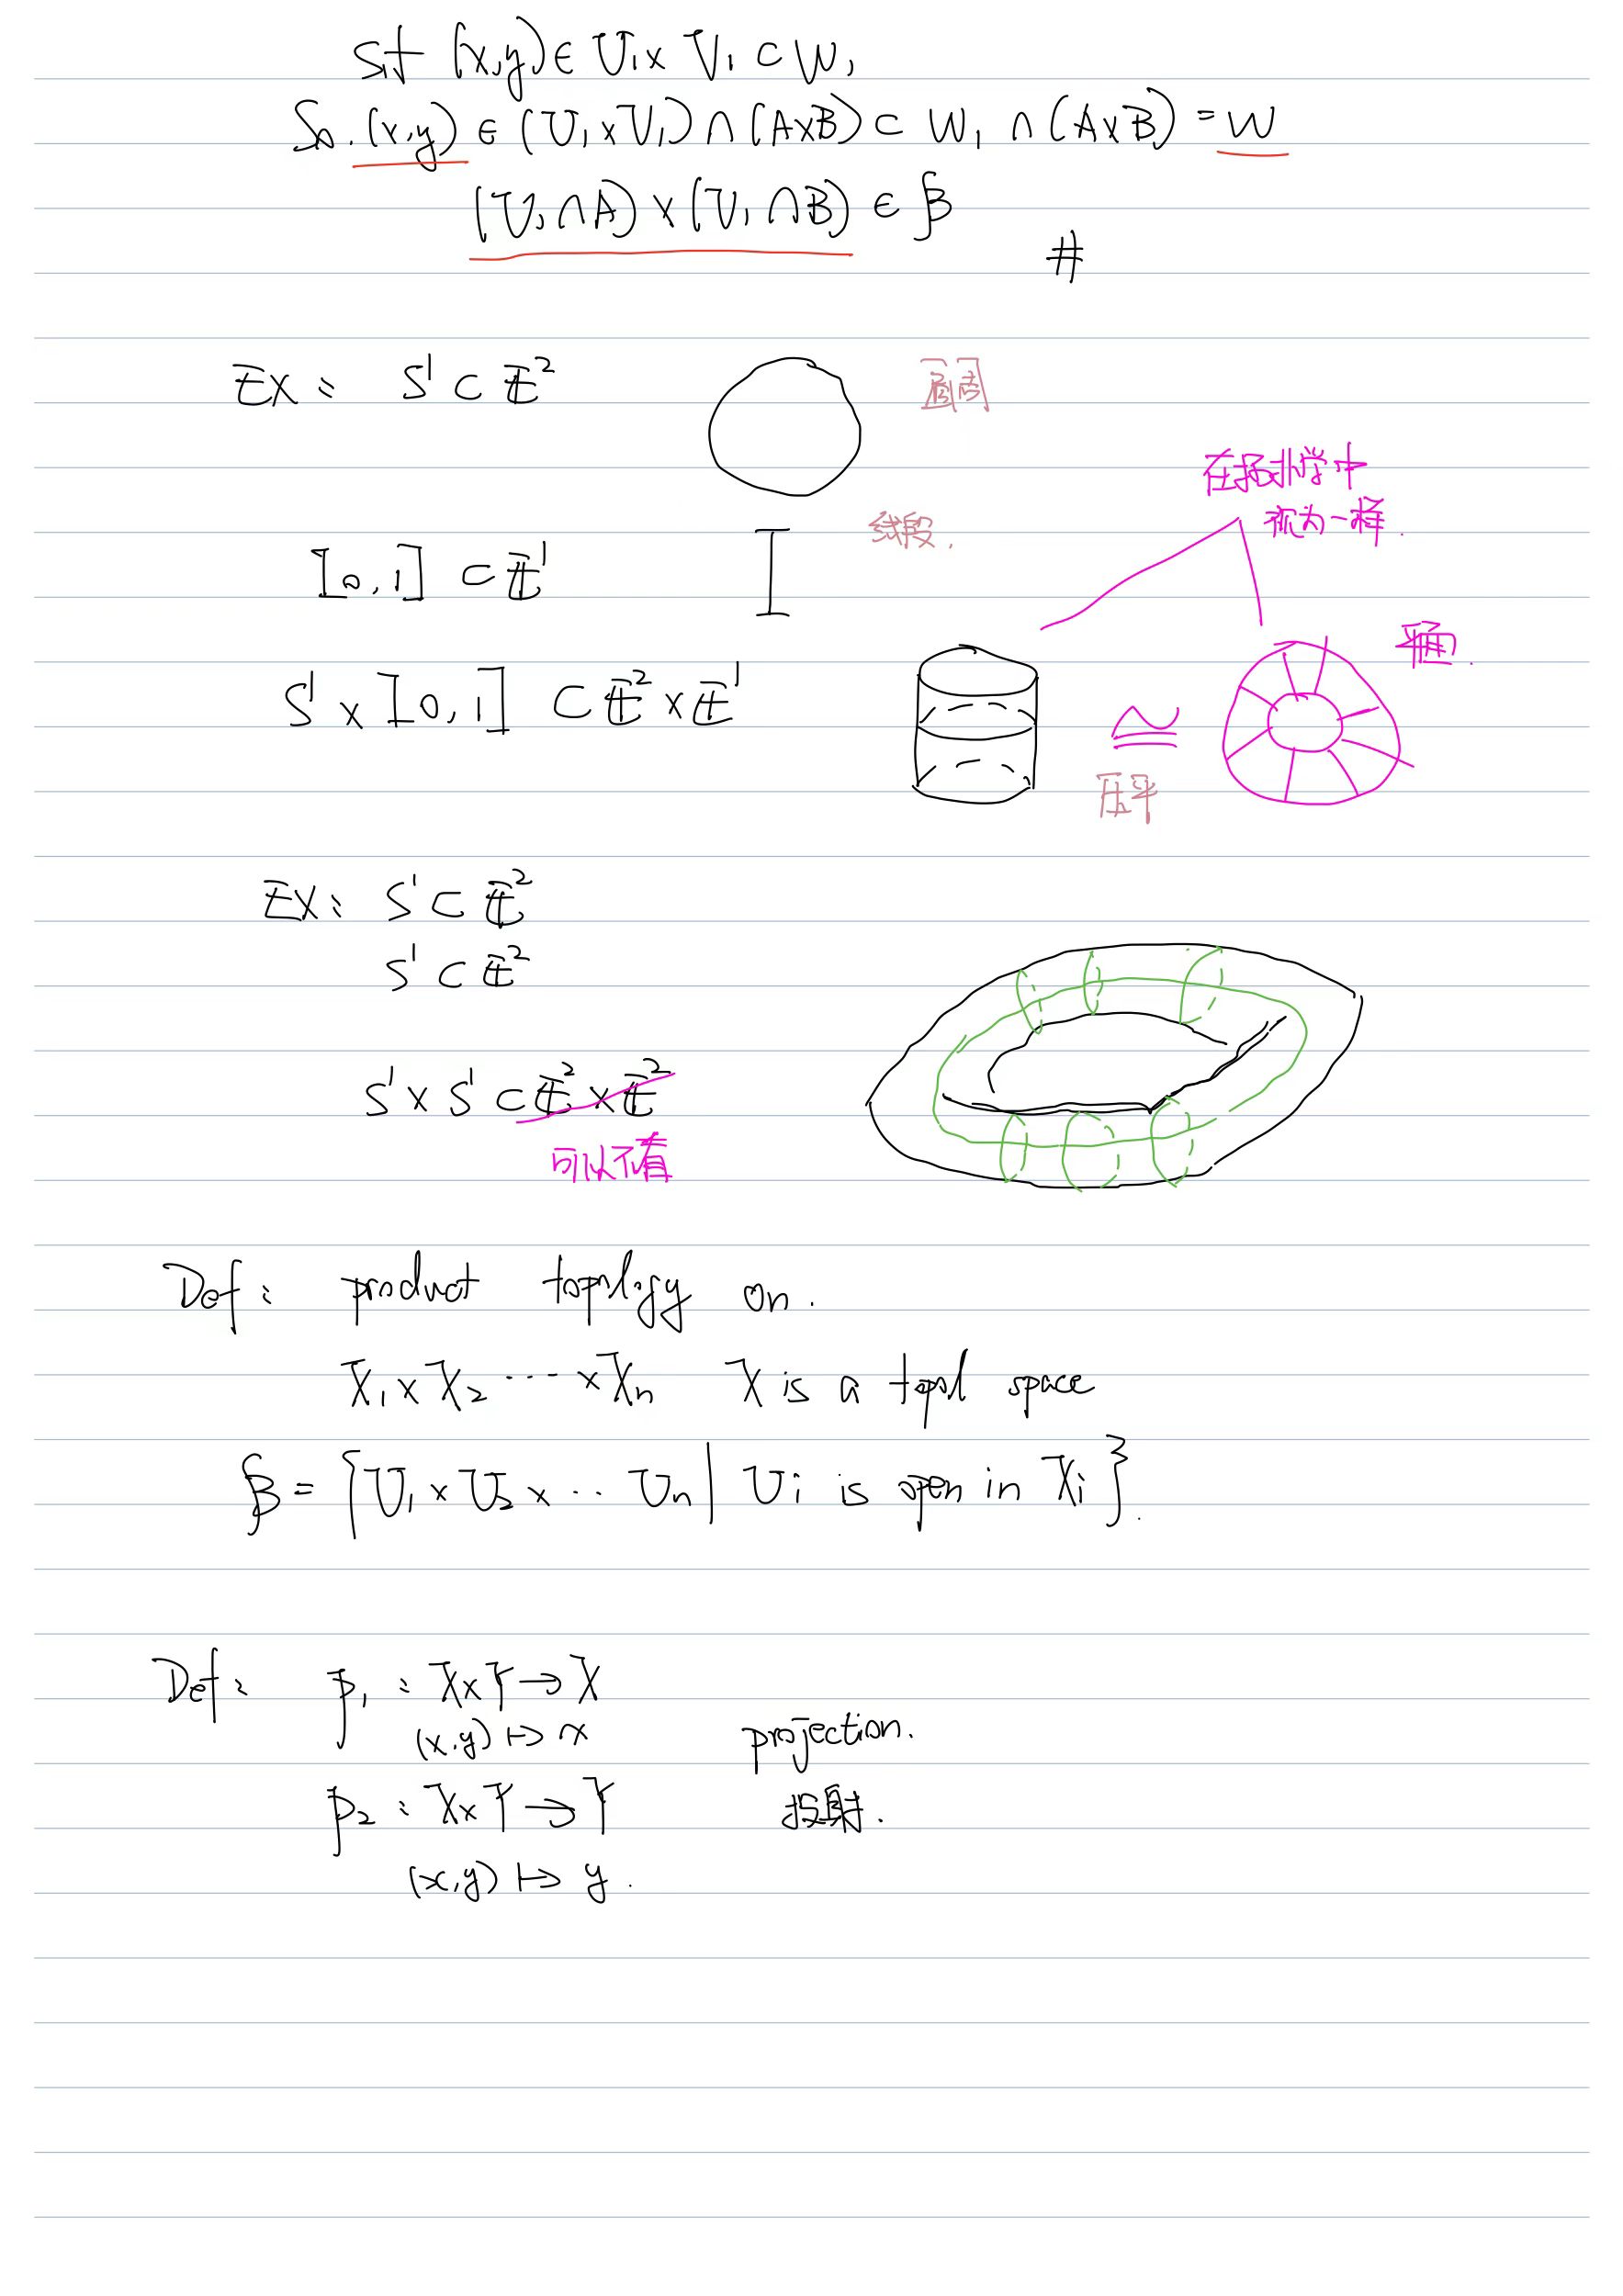 s.t (x,y) ∈ U₁ × V₁ ⊂ W₁
So. (x,y) ∈ (U₁ × V₁) ∩ (A×B) ⊂ W₁ ∩ (A×B) = W
(U₁∩A) × (V₁∩B) ∈ β
#
EX: S¹ ⊂ E²
圆周
[0,1] ⊂ E¹
线段.
在拓扑学中
视为一样.
S¹ × [0,1] ⊂ E² × E¹
≅
压平
平面.
EX: S¹ ⊂ E²
S¹ ⊂ E²
S¹ × S¹ ⊂ E² × E²
可以不看
Def: product topology on.
X₁ × X₂ ··· × Xn X is a topol space
β = {U₁ × U₂ × ·· Un | Ui is open in Xi}.
Def: p₁ : X×Y → X
(x,y) ↦ x
projection.
p₂ : X×Y → Y
投射.
(x,y) ↦ y.